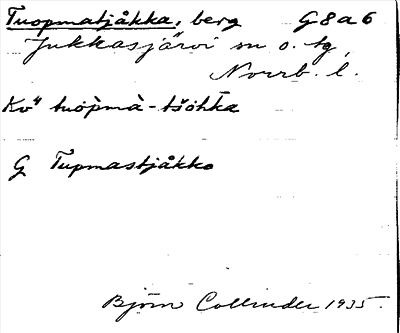 Tuopmatjåkka, berg G8a6
Jukkasjärvi sn o. tg,
Norrb. l.
Kv⁴ tuò̄pmà-tšŏhkka
G Tupmastjåkko
Björn Collinder 1935.